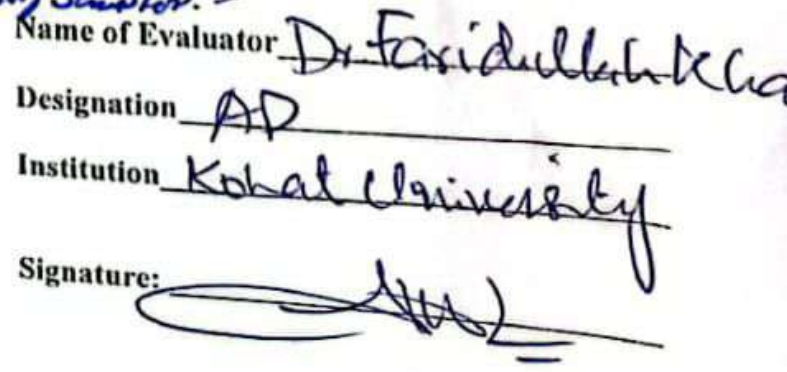 Name of Evaluator Dr Faridullah Kha
Designation AP
Institution Kohat University
Signature: